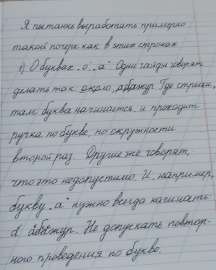 Я пытаюсь выработать примерно
такой почерк как в этих строках
1) О буквах "о", "а" Одни гайды говорят
делать так около, абажур. Где
там буква начинается и проходит
ручка по букве, по окружности
второй раз. Другие же говорят,
что это недопустимо. И, например,
букву "а" нужно всегда начинать
d абажур. Не допускать повтор-
ного проведения по букве.